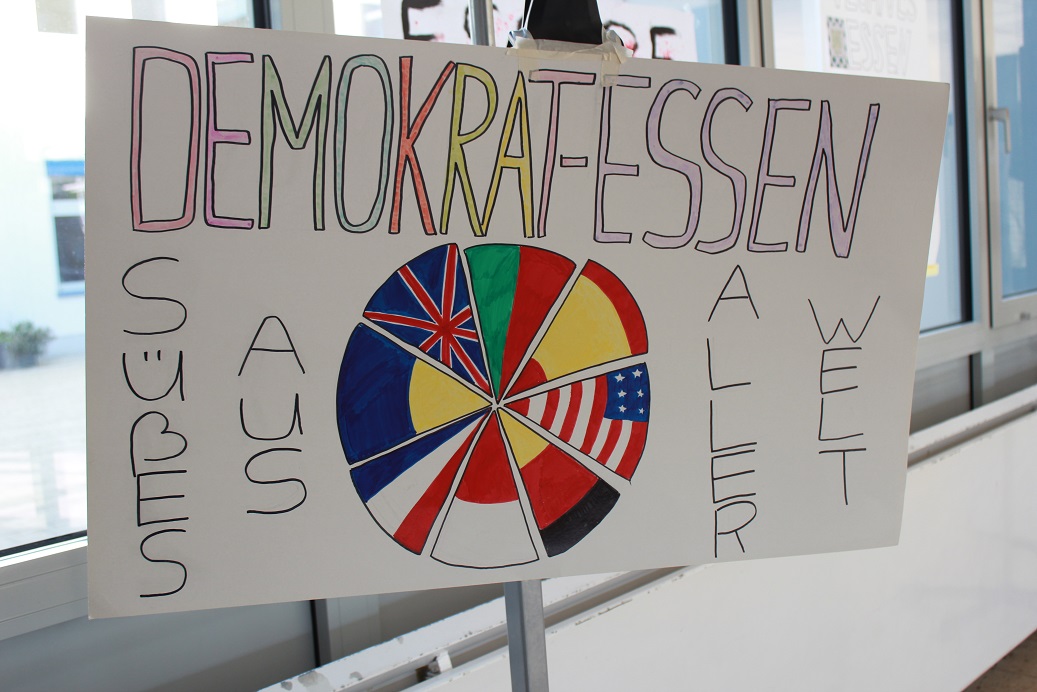 DEMOKRAT-ESSEN
SÜßES
AUS
ALLER
WELT